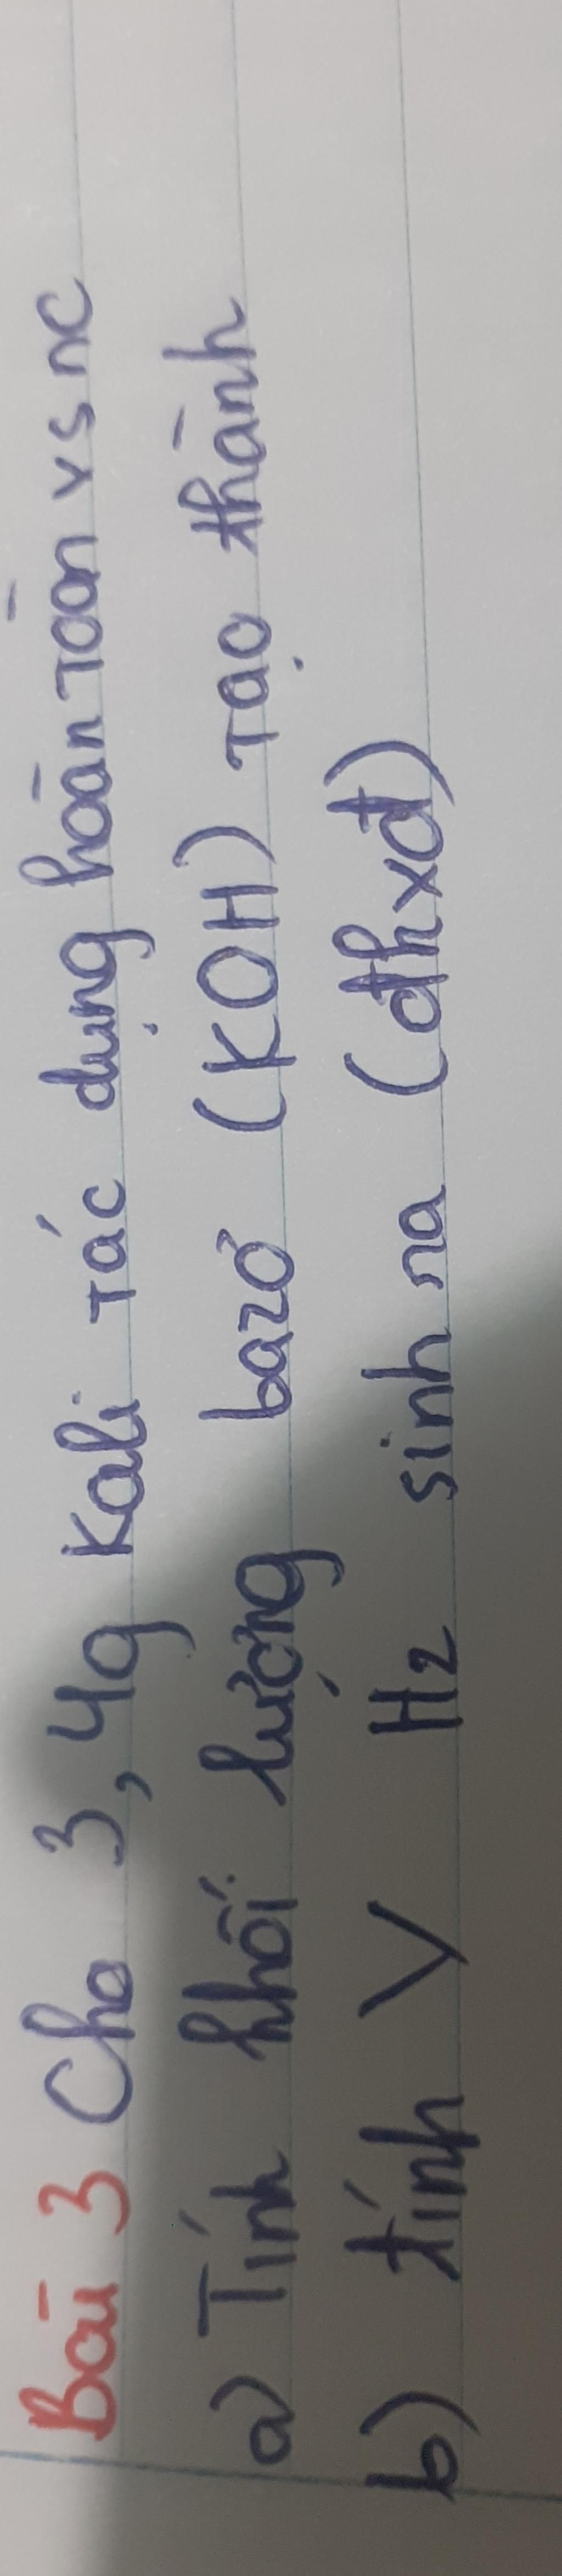 Bài 3 Cho 3,4g Kali Tác dụng hoàn Toàn vs nc
a) Tính khối lượng bazơ (KOH) Tạo thành
b) tính V H2 sinh ra (đhxđ)